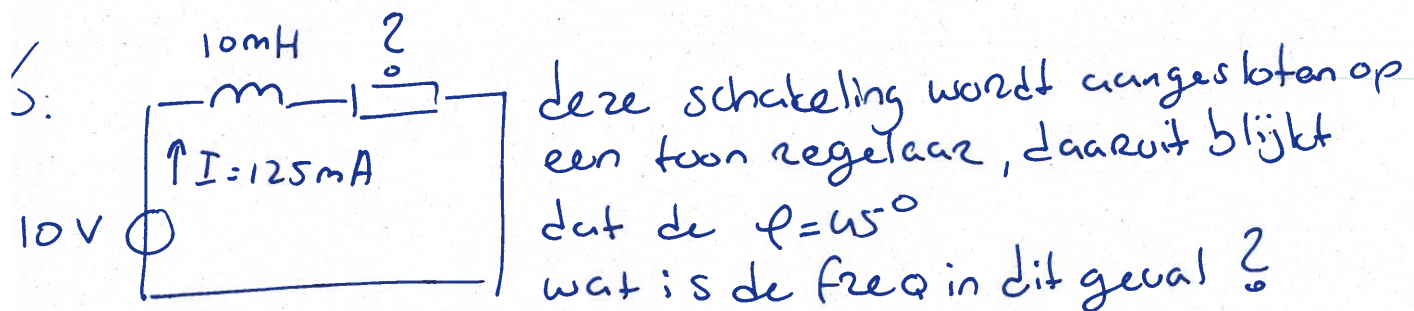 10mH ?
5. deze schakeling wordt aangesloten op
↑I=125mA een toon regelaar, daaruit blijkt
10V dat de φ=45°
wat is de freq in dit geval ?